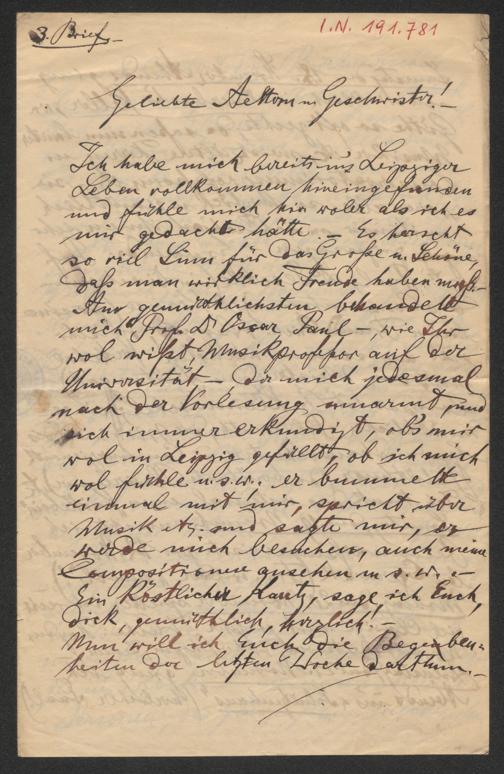 3. Brief.
I.N. 191.781
Geliebte Aeltern u. Geschwister! –
Ich habe mich bereits ins Leipziger
Leben vollkommen hineingefunden
und fühle mich hier woler als ich es
mir gedacht hätte. – Es herscht
so viel Sinn für das Große u. Schöne,
daß man wirklich Freude haben muß. –
Am gemüthlichsten behandelt
mich Prof. Dr Oscar Paul –, wie Ihr
wol wißt, Musikprofessor auf der
Universität – der mich jedesmal
nach der Vorlesung umarmt, und
sich immer erkundigt, obs mir
wol in Leipzig gefällt, ob ich mich
wol fühle u.s.w.; er bummelt
einmal mit mir, spricht über
Musik etz. und sagte mir, er
werde mich besuchen, auch meine
Compositionen ansehen u. s. w. –
Ein köstlicher Kautz, sage ich Euch,
dick, gemüthlich, herzlich! –
Nun will ich Euch die Begeben-
heiten der letzten Woche darthun. –